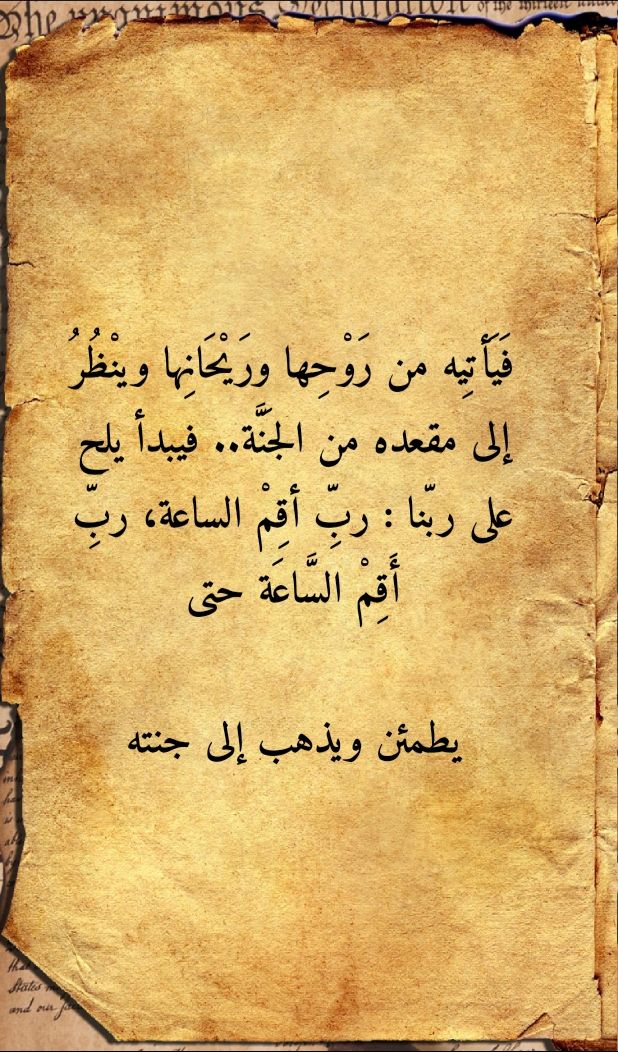 The unanimous Declaration of the thirteen united
فَيَأتِيِه من رَوْحِها ورَيْحَانِها وينْظُرُ
إلى مقعده من الجَنَّة.. فيبدأ يلح
على ربّنا : ربِّ أقِمْ الساعة، ربِّ
أَقِمْ السَّاعَة حتى
يطمئن ويذهب إلى جنته
that
States
and our